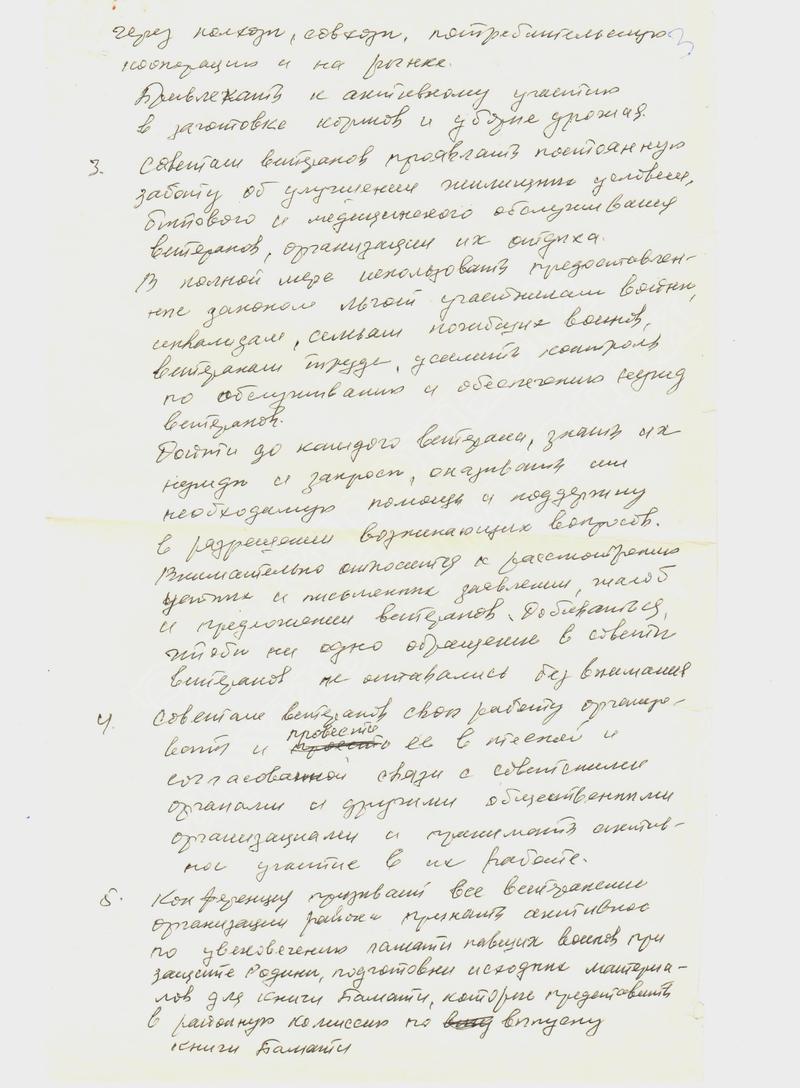 через колхозы, совхозы, потребительскую
кооперацию и на рынке.
Привлекать к активному участию
в заготовке кормов и уборке урожая.
3. Советам ветеранов проявлять постоянную
заботу об улучшении жилищных условий,
бытового и медицинского обслуживания
ветеранов, организации их отдыха.
В полной мере использовать предоставлен-
ные законом льготы участникам войны,
инвалидам, семьям погибших воинов,
ветеранам труда, усилить контроль
по обслуживанию и обеспечению нужд
ветеранов.
Дойти до каждого ветерана, знать их
нужды и запросы, оказывать им
необходимую помощь и поддержку
в разрешении возникающих вопросов.
Внимательно относится к рассмотрению
устных и письменных заявлений, жалоб
и предложений ветеранов. Добиваться,
чтобы ни одно обращение в советы
ветеранов не оставались без внимания
4. Советам ветеранов свою работу организо-
вать и провести ее в тесной и
согласованной связи с советскими
органами и другими общественными
организациями и принимать актив-
ное участие в их работе.
5. Конференция призывает все ветеранские
организации района принять активное
по увековечению памяти павших воинов при
защите Родины, подготовки исходных материа-
лов для книги Памяти, которые представить
в районную комиссию по выпуску
книги Памяти